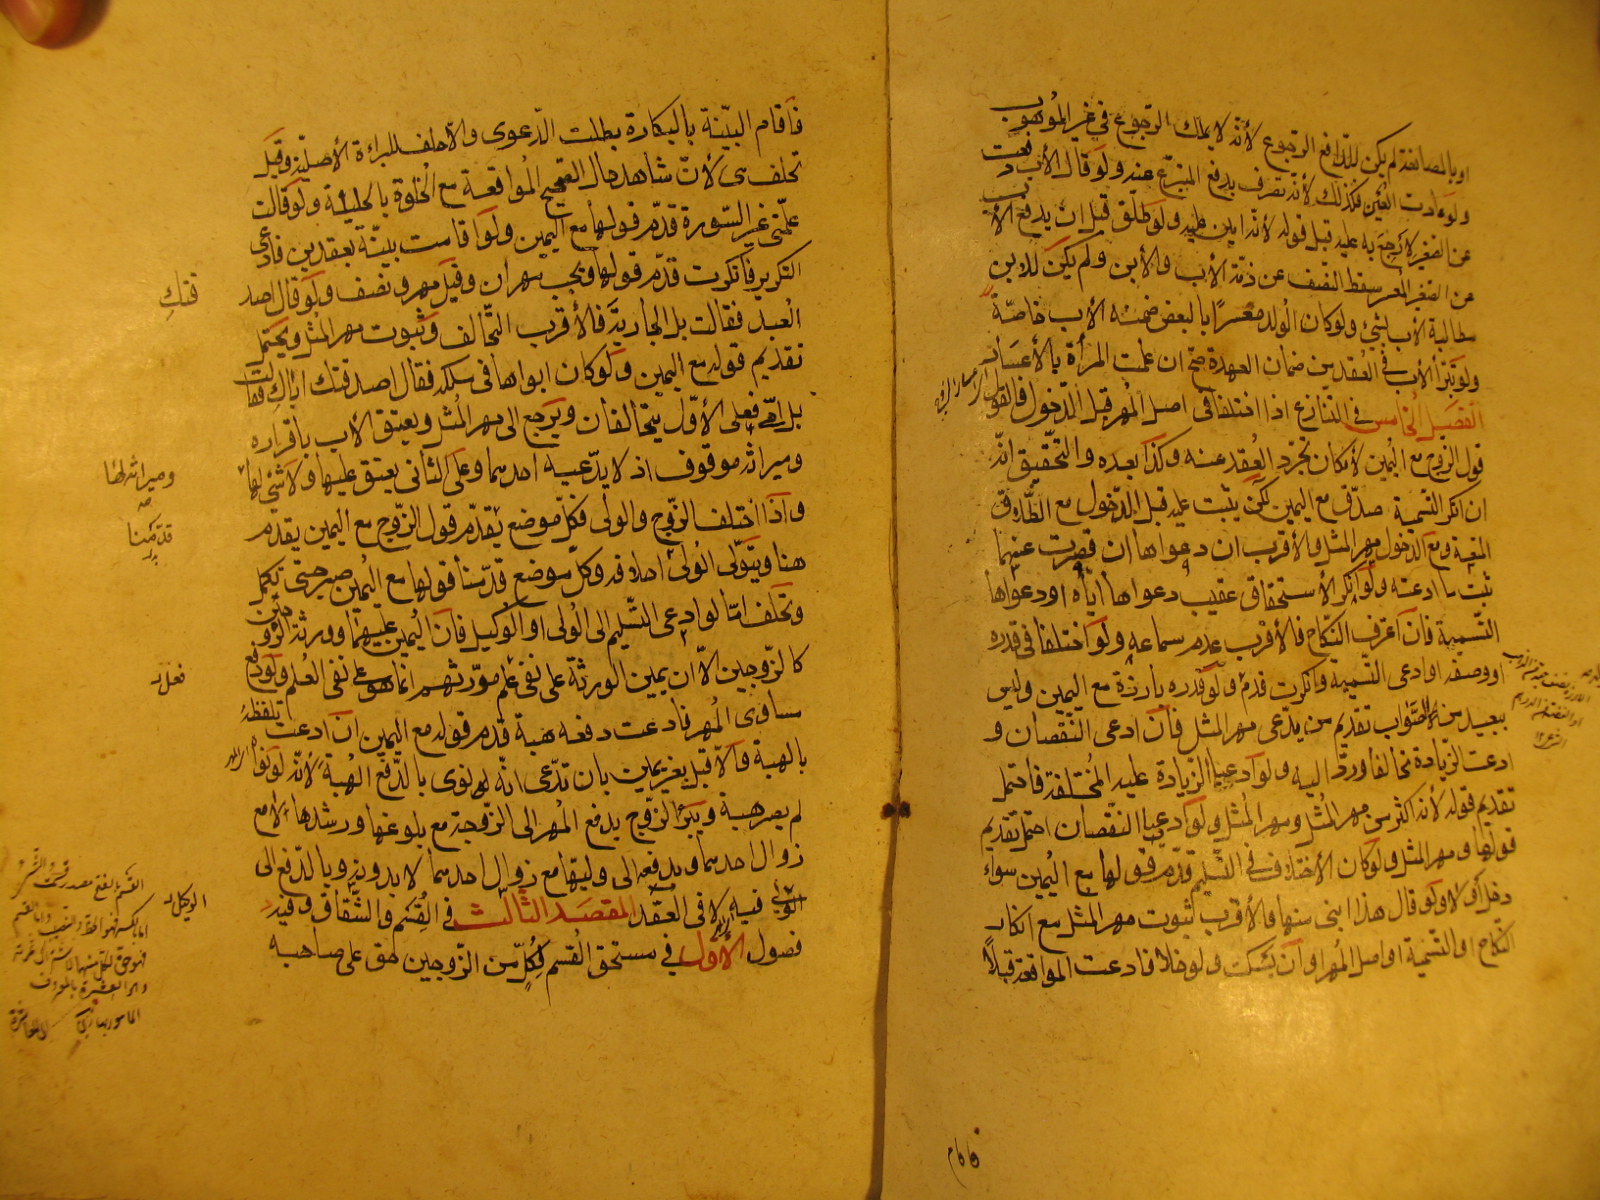 او بالمصانعة لم يكن للدافع الرجوع لأنه لا يملك الرجوع في غير الموهوب
ولو عادت العين فكذلك لأنه تصرف بدفع المتبرع عنه ولو قال الأب دفعت
عن الصغير لأرجع به عليه قبل قوله لأنه امين عليه ولو طلق قبل ان يدفع الأب
عن الصغير المعسر سقط النصف عن ذمة الأب والأبن ولم يكن للابن
مطالبة الأب بشئ ولو كان الولد معسرًا بالبعض ضمنه الأب خاصّة
ولو تبرّأ الأب في العقد من ضمان العهدة صحّ ان علمت المرأة بالأعسار
الفصل الخامس في التنازع اذا اختلفا في اصل المهر قبل الدّخول فالقول
قول الزوج مع اليمين لأمكان تجرّد العقد عنه وكذا بعده والتّحقيق انّه
ان انكر التسمية صدّق مع اليمين لكن يثبت عليه قبل الدّخول مع الطّلاق
المتعة ومع الدّخول مهر المثل والأقرب ان دعواها ان قصرت عنهما
ثبت ما ادعته ولو انكر الأستحقاق عقيب دعواها ايّاه او دعواها
التّسمية فان اعترف النّكاح فالأقرب عدم سماعه ولو اختلفا في قدره
او وصفه او ادعى التّسمية وانكرت قدم ولو قدره بارزة مع اليمين وليس
ببعيد من الصّواب تقديم من يدّعى مهر المثل فان ادعى النّقصان و
ادعت الزّيادة تحالفا وردّ اليه ولو ادعيا الزّيادة عليه المختلفة فاحتمل
تقديم قوله لأنه اكثر من مهر المثل ومهر المثل ولو ادعيا النقصان احتمل تقديم
قولها ومهر المثل ولو كان الأختلاف في التّسليم قدّم قولها مع اليمين سواء
دخل او لا ولو قال هذا ابنى منها فالأقرب ثبوت مهر المثل مع انكار
النّكاح او التّسمية او اصل المهر او ان يسكت ولو خلا فادعت المواقعة قبلًا
فاقام
فاقام البيّنة بالبكارة بطلت الدّعوى والّا حلف للبراءة الأصليّة وقيل
تحلف هى لأنّ شاهد حال الصّحيح المواقعة مع الخلوة بالحليلة ولو قالت
علّمنى غير السّورة قدّم قولها مع اليمين ولو اقامت بيّنة بعقدين فادّعى
التكرير فانكرت قدّم قولها ويجب مهران وقيل مهر ونصف ولو قال اصد
قتكِ
العبد فقالت بل الجارية فالأقرب التّحالف وثبوت مهر المثل ويحتمل
تقديم قوله مع اليمين ولو كان ابواها فى ملكه فقال اصدقتك اباكِ فقالت
بل امّى فعلى الأوّل يتحالفان ويرجع الى مهر المثل ويعتق الأب باقراره
وميراثه لها
وميراثه موقوف اذ لا يدّعيه احدهما وعلى الثانى يعتق عليها ولا شئ لها
واذا اختلف الزّوج والولى فكلّ موضع يقدّم قول الزّوج مع اليمين يقدم
قدّمنا
هنا ويتولّى الولى احلافه وكلّ موضع قدّمنا قولها مع اليمين صبر حتى تكمل
وتحلف امّا لو ادعى التّسليم الى الولى او الوكيل فان اليمين عليهما وورثة الزّو
جين
كالزّوجين الّا ان يمين الورثة على نفى علم مورّثهم انما هو على نفى العلم ولو دفع
فعل
مساوى المهر فادعت دفعه هبة قدّم قوله مع اليمين ان ادعت تلفّظه
بالهبة والّا قبل بغير يمين بان تدّعى انّه نوى بالدّفع الهبة لأنّه لو نواه
لم يصر هبة ويبرأ الزّوج بدفع المهر الى الزّوجة مع بلوغها ورشدها لا مع
زوال احدهما وبدفعه الى وليها مع زوال احدهما لا بدونه وبالدّفع الى
الوكيل
فيه لا فى العقد المقصد الثالث في القسم والشّقاق وفيه
فصول الأوّل في مستحق القسم لكلّ من الزّوجين حق على صاحبه